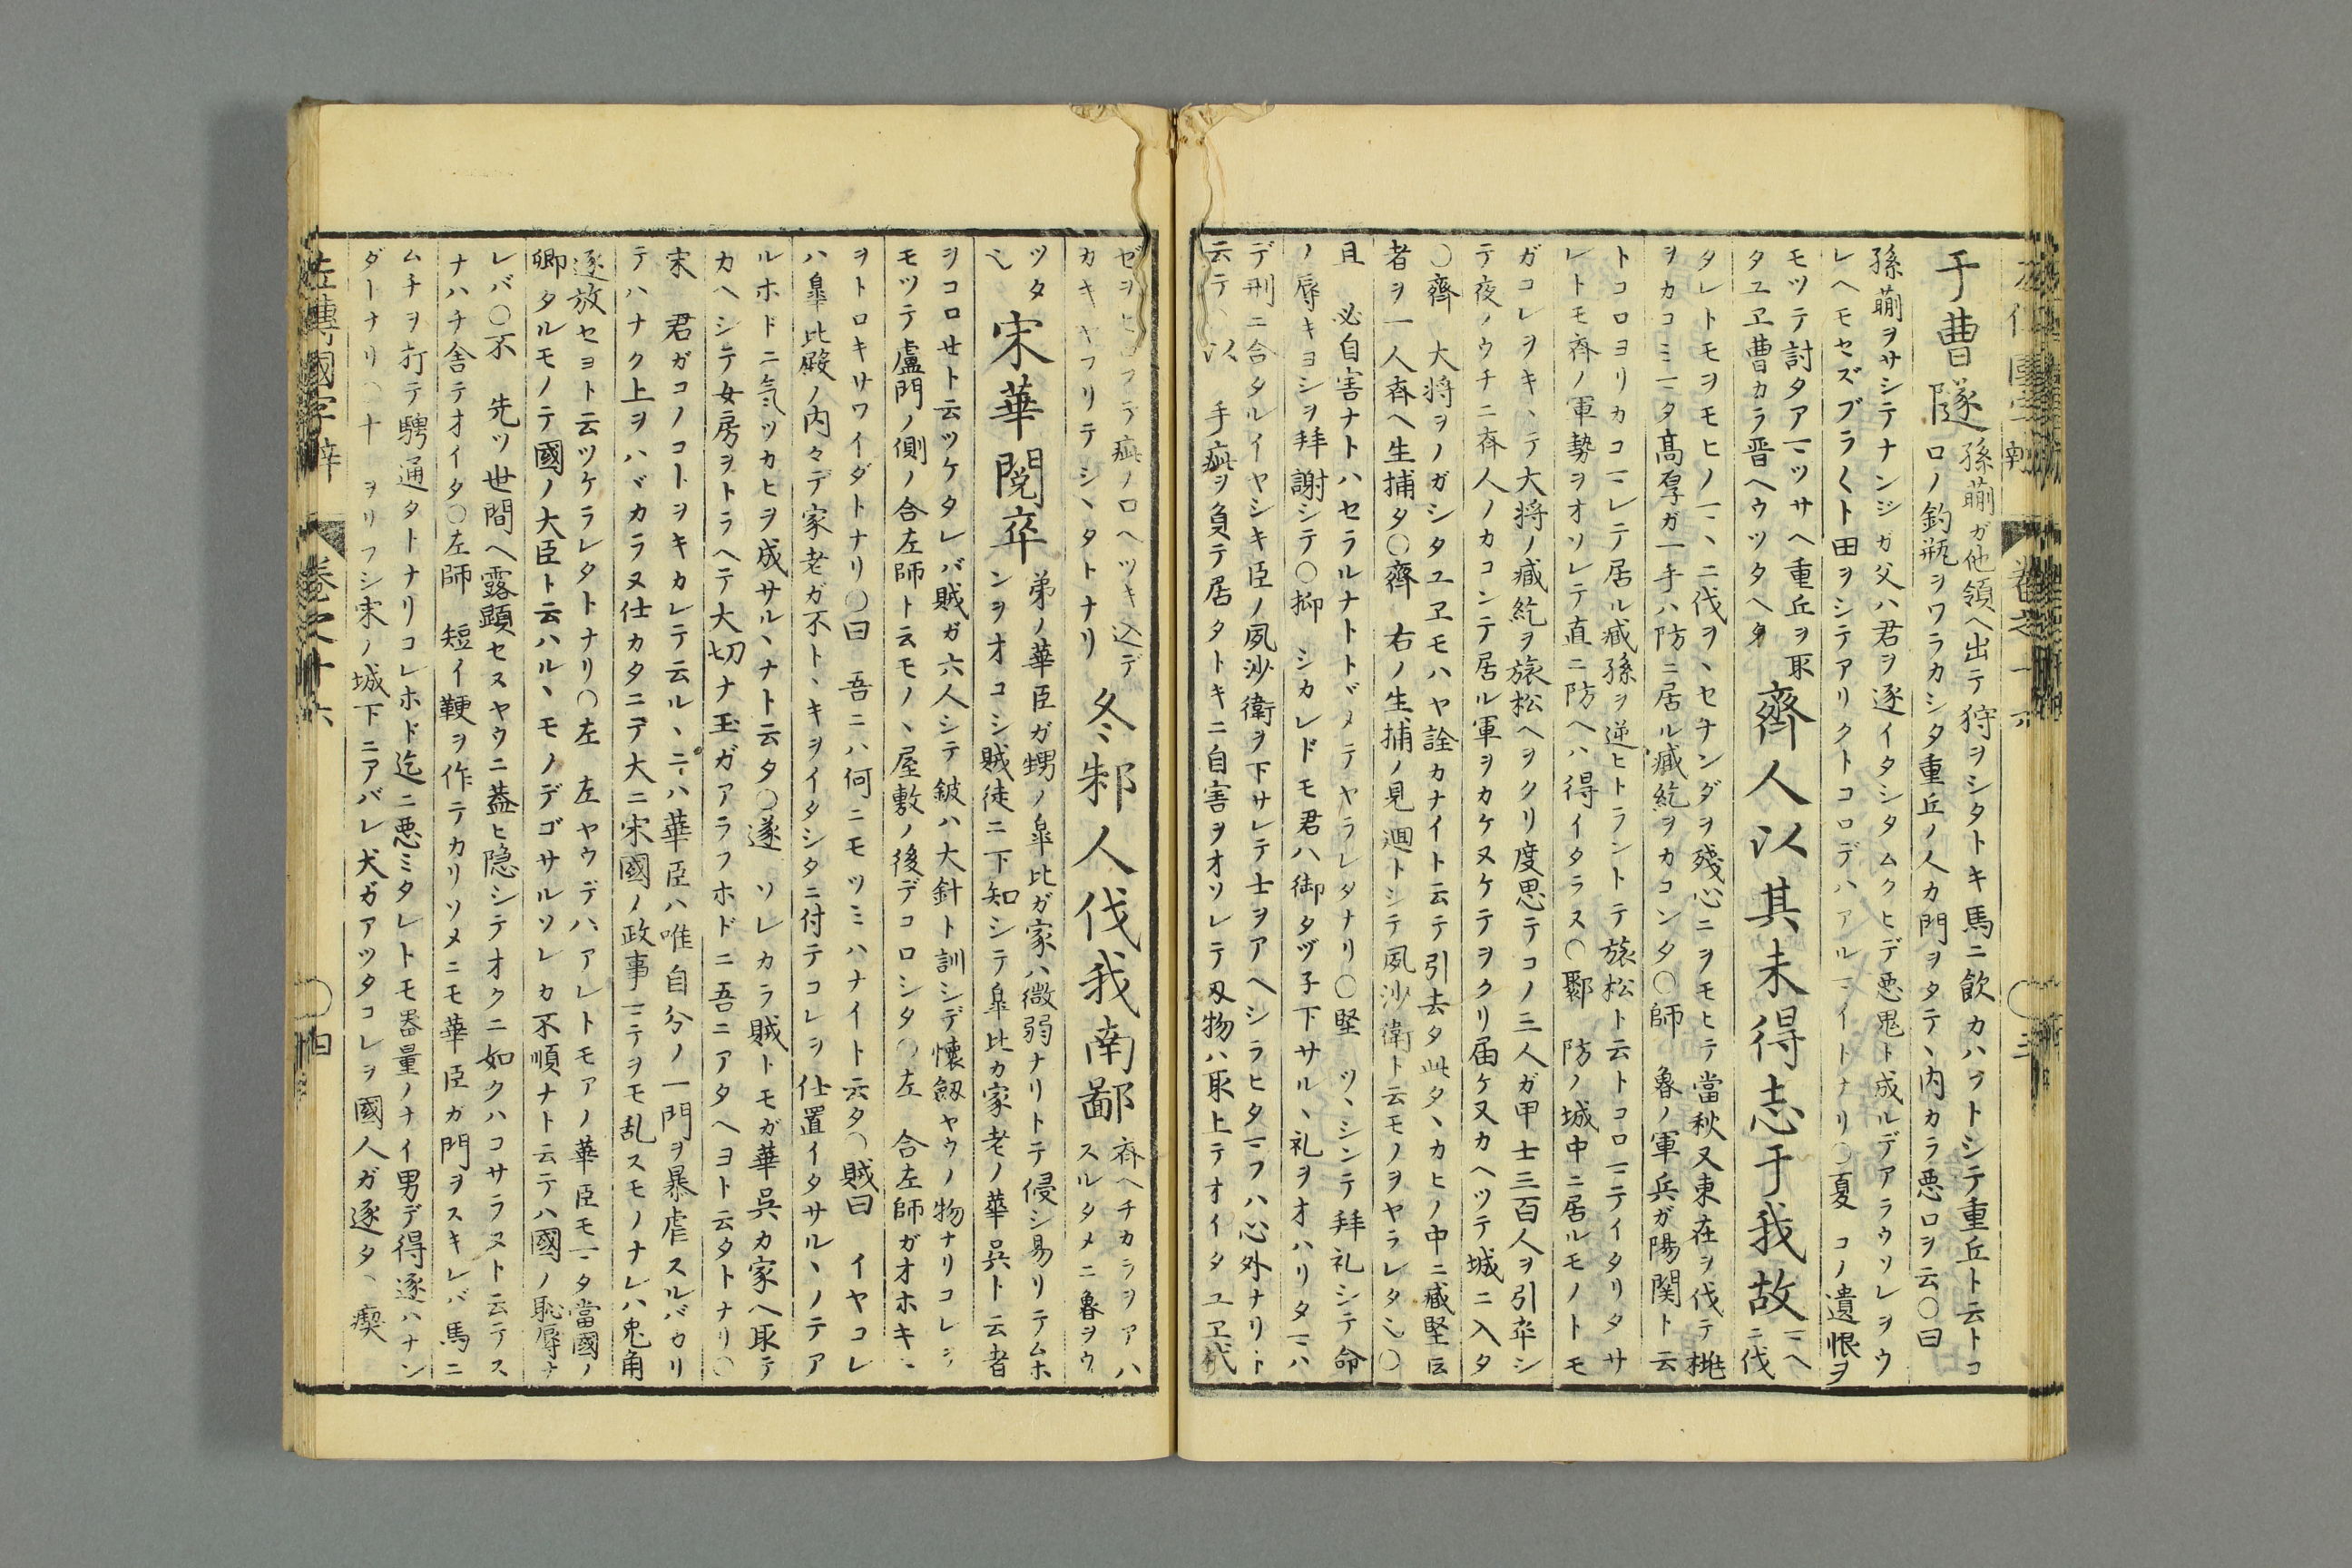 于曹隧
孫蒯ガ他領ヘ出テ狩ヲシタトキ馬ニ飲カハフトシテ重丘ト云トコ
ロノ釣瓶ヲワラカシタ重丘ノ人カ門ヲタテヽ内カラ悪口ヲ云〇曰
孫蒯ヲサシテナンジガ父ハ君ヲ逐イタシタムクヒデ悪鬼ト成ルデアラウソレヲウ
レヘモセズブラ〱ト田ヲシテアリクトコロデハアルマイトナリ〇夏 コノ遺恨ヲ
モツテ討タアマツサヘ重丘ヲ取
タユヱ曹カラ晋ヘウツタヘタ
齊人以其未得志于我故
マヘ
ニ伐
タレトモヲモヒノマヽニ伐ヲヽセナンダヲ残心ニヲモヒテ當秋又東在ヲ伐テ桃
ヲカコミマタ髙厚ガ一手ハ防ニ居ル臧紇ヲカコンタ〇師 魯ノ軍兵ガ陽関ト云
トコロヨリカコマレテ居ル臧孫ヲ逆ヒトラントテ旅松ト云トコロマテイタリタサ
レトモ齊ノ軍勢ヲオソレテ直ニ防ヘハ得イタラス〇鄹 防ノ城中ニ居ルモノトモ
ガコレヲキヽテ大将ノ臧紇ヲ旅松ヘヲクリ度思テコノ三人ガ甲士三百人ヲ引卒シ
テ夜ノウチニ齊人ノカコンテ居ル軍ヲカケヌケテヲクリ届ケ又カヘツテ城ニ入タ
〇齊 大将ヲノガシタユヱモハヤ詮カナイト云テ引去タ此タヽカヒノ中ニ臧堅ト云
者ヲ一人齊ヘ生捕タ〇齊 右ノ生捕ノ見廻トシテ夙沙衛ト云モノヲヤラレタ〇
且 必自害ナトハセラルナトトヾメテヤラレタナリ〇堅 ツヽシンテ拜礼シテ命
ノ辱キヨシヲ拜謝シテ〇抑 シカレドモ君ハ御タヅ子下サルヽ礼ヲオハリタマハ
デ刑ニ合タルイヤシキ臣ノ夙沙衛ヲ下サレテ士ヲアヘシラヒタマフハ心外ナリト
云テ〇以 手疵ヲ負テ居タトキニ自害ヲオソレテ刄物ハ取上テオイタユヱ代
ツテ疵ノ口ヘツキ込デ
カキヤフリテシヽタトナリ
冬邾人伐我南鄙
齊ヘチカラヲアハ
スルタメニ魯ヲウ
ツタ
宋華閲卒
弟ノ華臣ガ甥ノ皐比ガ家ハ微弱ナリトテ侵シ易リテムホ
ンヲオコシ賊徒ニ下知シテ皐比カ家老ノ華呉ト云者
ヲコロせト云ツケタレバ賊ガ六人シテ鈹ハ大針ト訓シデ懐劔ヤウノ物ナリコレヲ
モツテ盧門ノ側ノ合左師ト云モノヽ屋敷ノ後デコロシタ〇左 合左師ガオホキニ
ヲトロキサワイダトナリ〇曰 吾ニハ何ニモツミハナイト云タ〇賊曰 イヤコレ
ハ皐比殿ノ内々デ家老ガ不トヽキヲイタシタニ付テコレヲ仕置イタサルヽノテア
ルホドニ気ツカヒヲ成サルヽナト云タ〇遂 ソレカラ賊トモガ華呉カ家ヘ取テ
カヘシテ女房ヲトラヘテ大切ナ玉ガアラフホドニ吾ニアタヘヨト云タトナリ〇
宋 君ガコノコトヲキカレテ云ルヽニハ華臣ハ唯自分ノ一門ヲ暴虐スルバカリ
テハナク上ヲハヾカラヌ仕カタニテ大ニ宋國ノ政事マテヲモ乱スモノナレハ兎角
逐放セヨト云ツケラレタトナリ〇左 左ヤウデハアレトモアノ華臣モマタ當國ノ
卿タルモノテ國ノ大臣ト云ハルヽモノデゴサルソレカ不順ナト云テハ國ノ恥辱ナ
レバ〇不 先ツ世間ヘ露顕セヌヤウニ葢ヒ隠シテオクニ如クハコサラヌト云テス
ナハチ舎テオイタ〇左師 短イ鞭ヲ作テカリソメニモ華臣ガ門ヲスキレバ馬ニ
ムチヲ打テ騁通タトナリコレホド迄ニ悪ミタレトモ器量ノナイ男デ得逐ハナン
ダトナリ〇十 ヲリフシ宋ノ城下ニアバレ犬ガアツタコレヲ國人ガ逐タヽ瘈
左傳國字辯 巻之十六 〇四